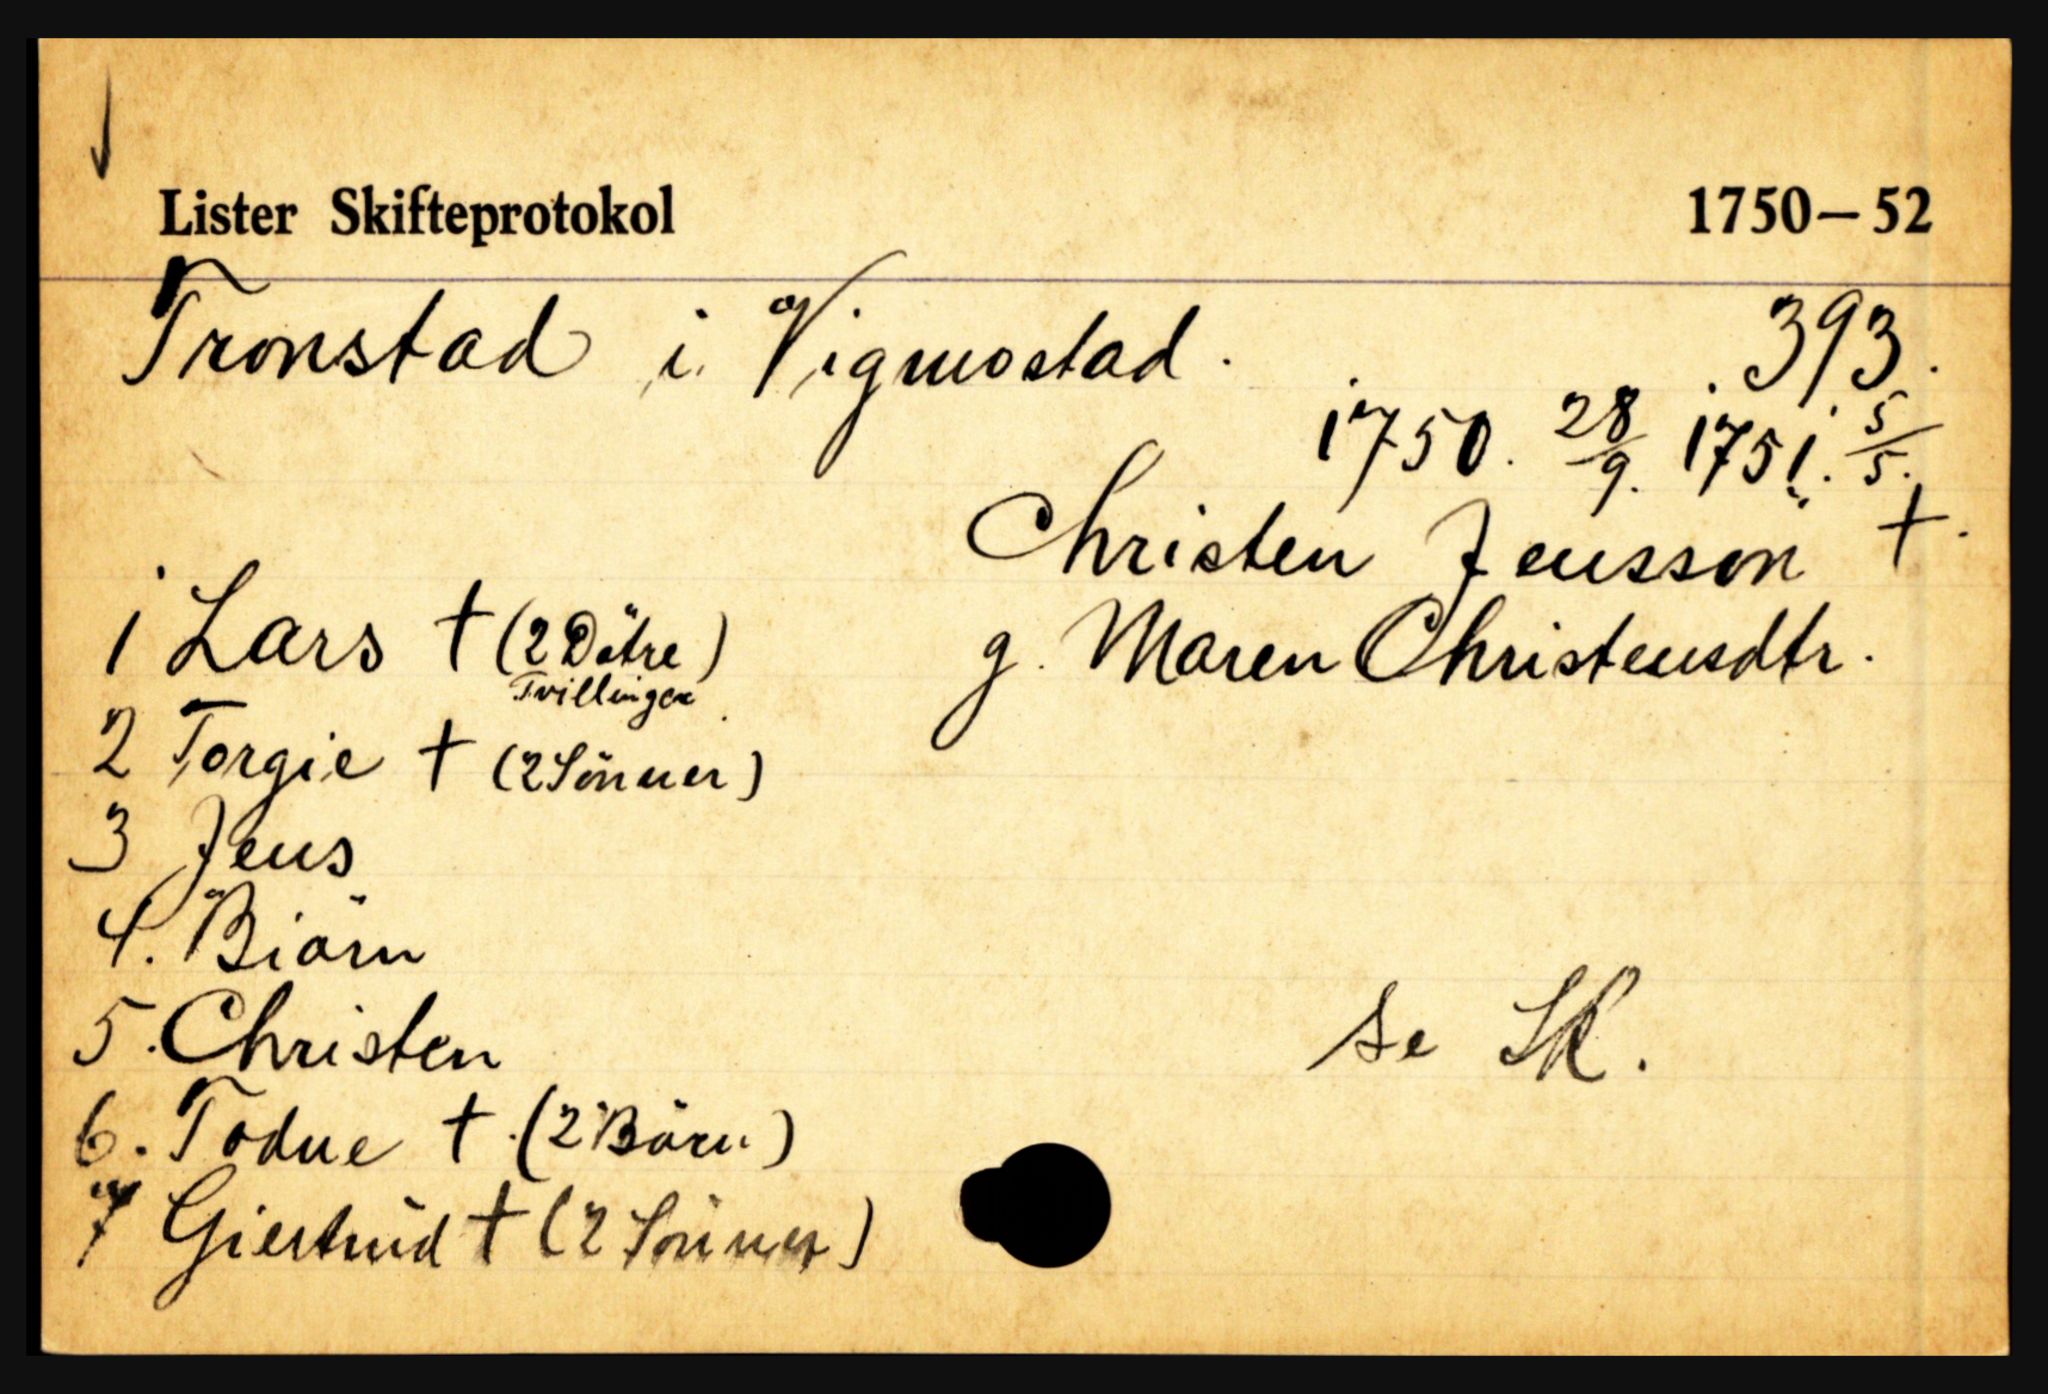 Lister Skifteprotokol 1750–52
Tronstad i Vigmostad. 393.
1750. 28/9. 1751. 5/5.
Christen Jensson †.
g. Maren Christensdtr.
1 Lars † (2 Dötre)
Tvillinger
2 Torgie † (2 Sönner)
3 Jens
4. Biörn
5. Christen
6. Todne † (2 Börn)
7 Giertrud † (2 Sönner)
se SK.